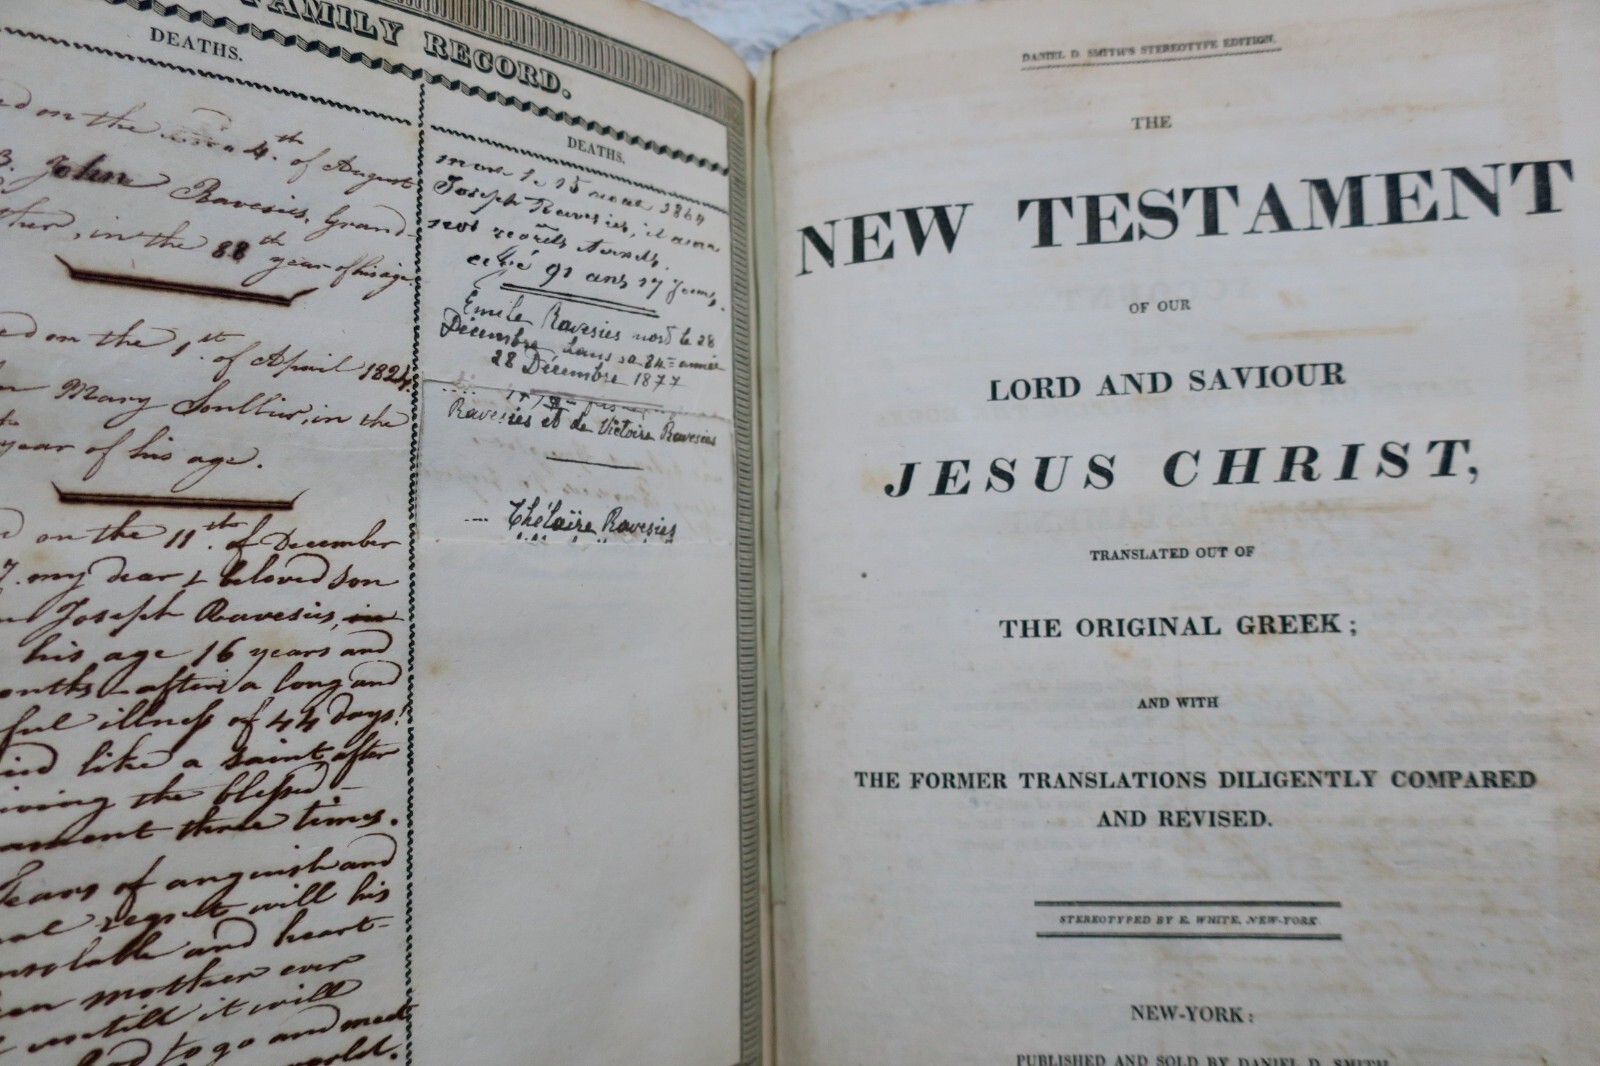 FAMILY RECORD.
DEATHS.
on the 4th of August
John Ravesies, Grand-
in the 88th year of his age
on the 1st of April 1824
Mary Soullier, in the
year of his age.
on the 11th of December
my dear & beloved son
Joseph Ravesies, in
his age 16 years and
after a long and
illness of 44 days!
like a saint after
the blessed
three times.
Tears of anguish and
regret will his
and heart-
mother ever
untill it will
to go and meet
world.
DEATHS.
mort le 15 1864
Joseph Ravesies, il
nos regrets
91 ans 17 Jours,
Emile Ravesies mort le 28
Décembre, dans sa 84= année
28 Décembre 1877
Ravesies et de Victoire Ravesies
Thélaïre Ravesies
DANIEL D. SMITH'S STEREOTYPE EDITION.
THE
NEW TESTAMENT
OF OUR
LORD AND SAVIOUR
JESUS CHRIST,
TRANSLATED OUT OF
THE ORIGINAL GREEK;
AND WITH
THE FORMER TRANSLATIONS DILIGENTLY COMPARED
AND REVISED.
STEREOTYPED BY E. WHITE, NEW-YORK
NEW-YORK:
PUBLISHED AND SOLD BY DANIEL D. SMITH